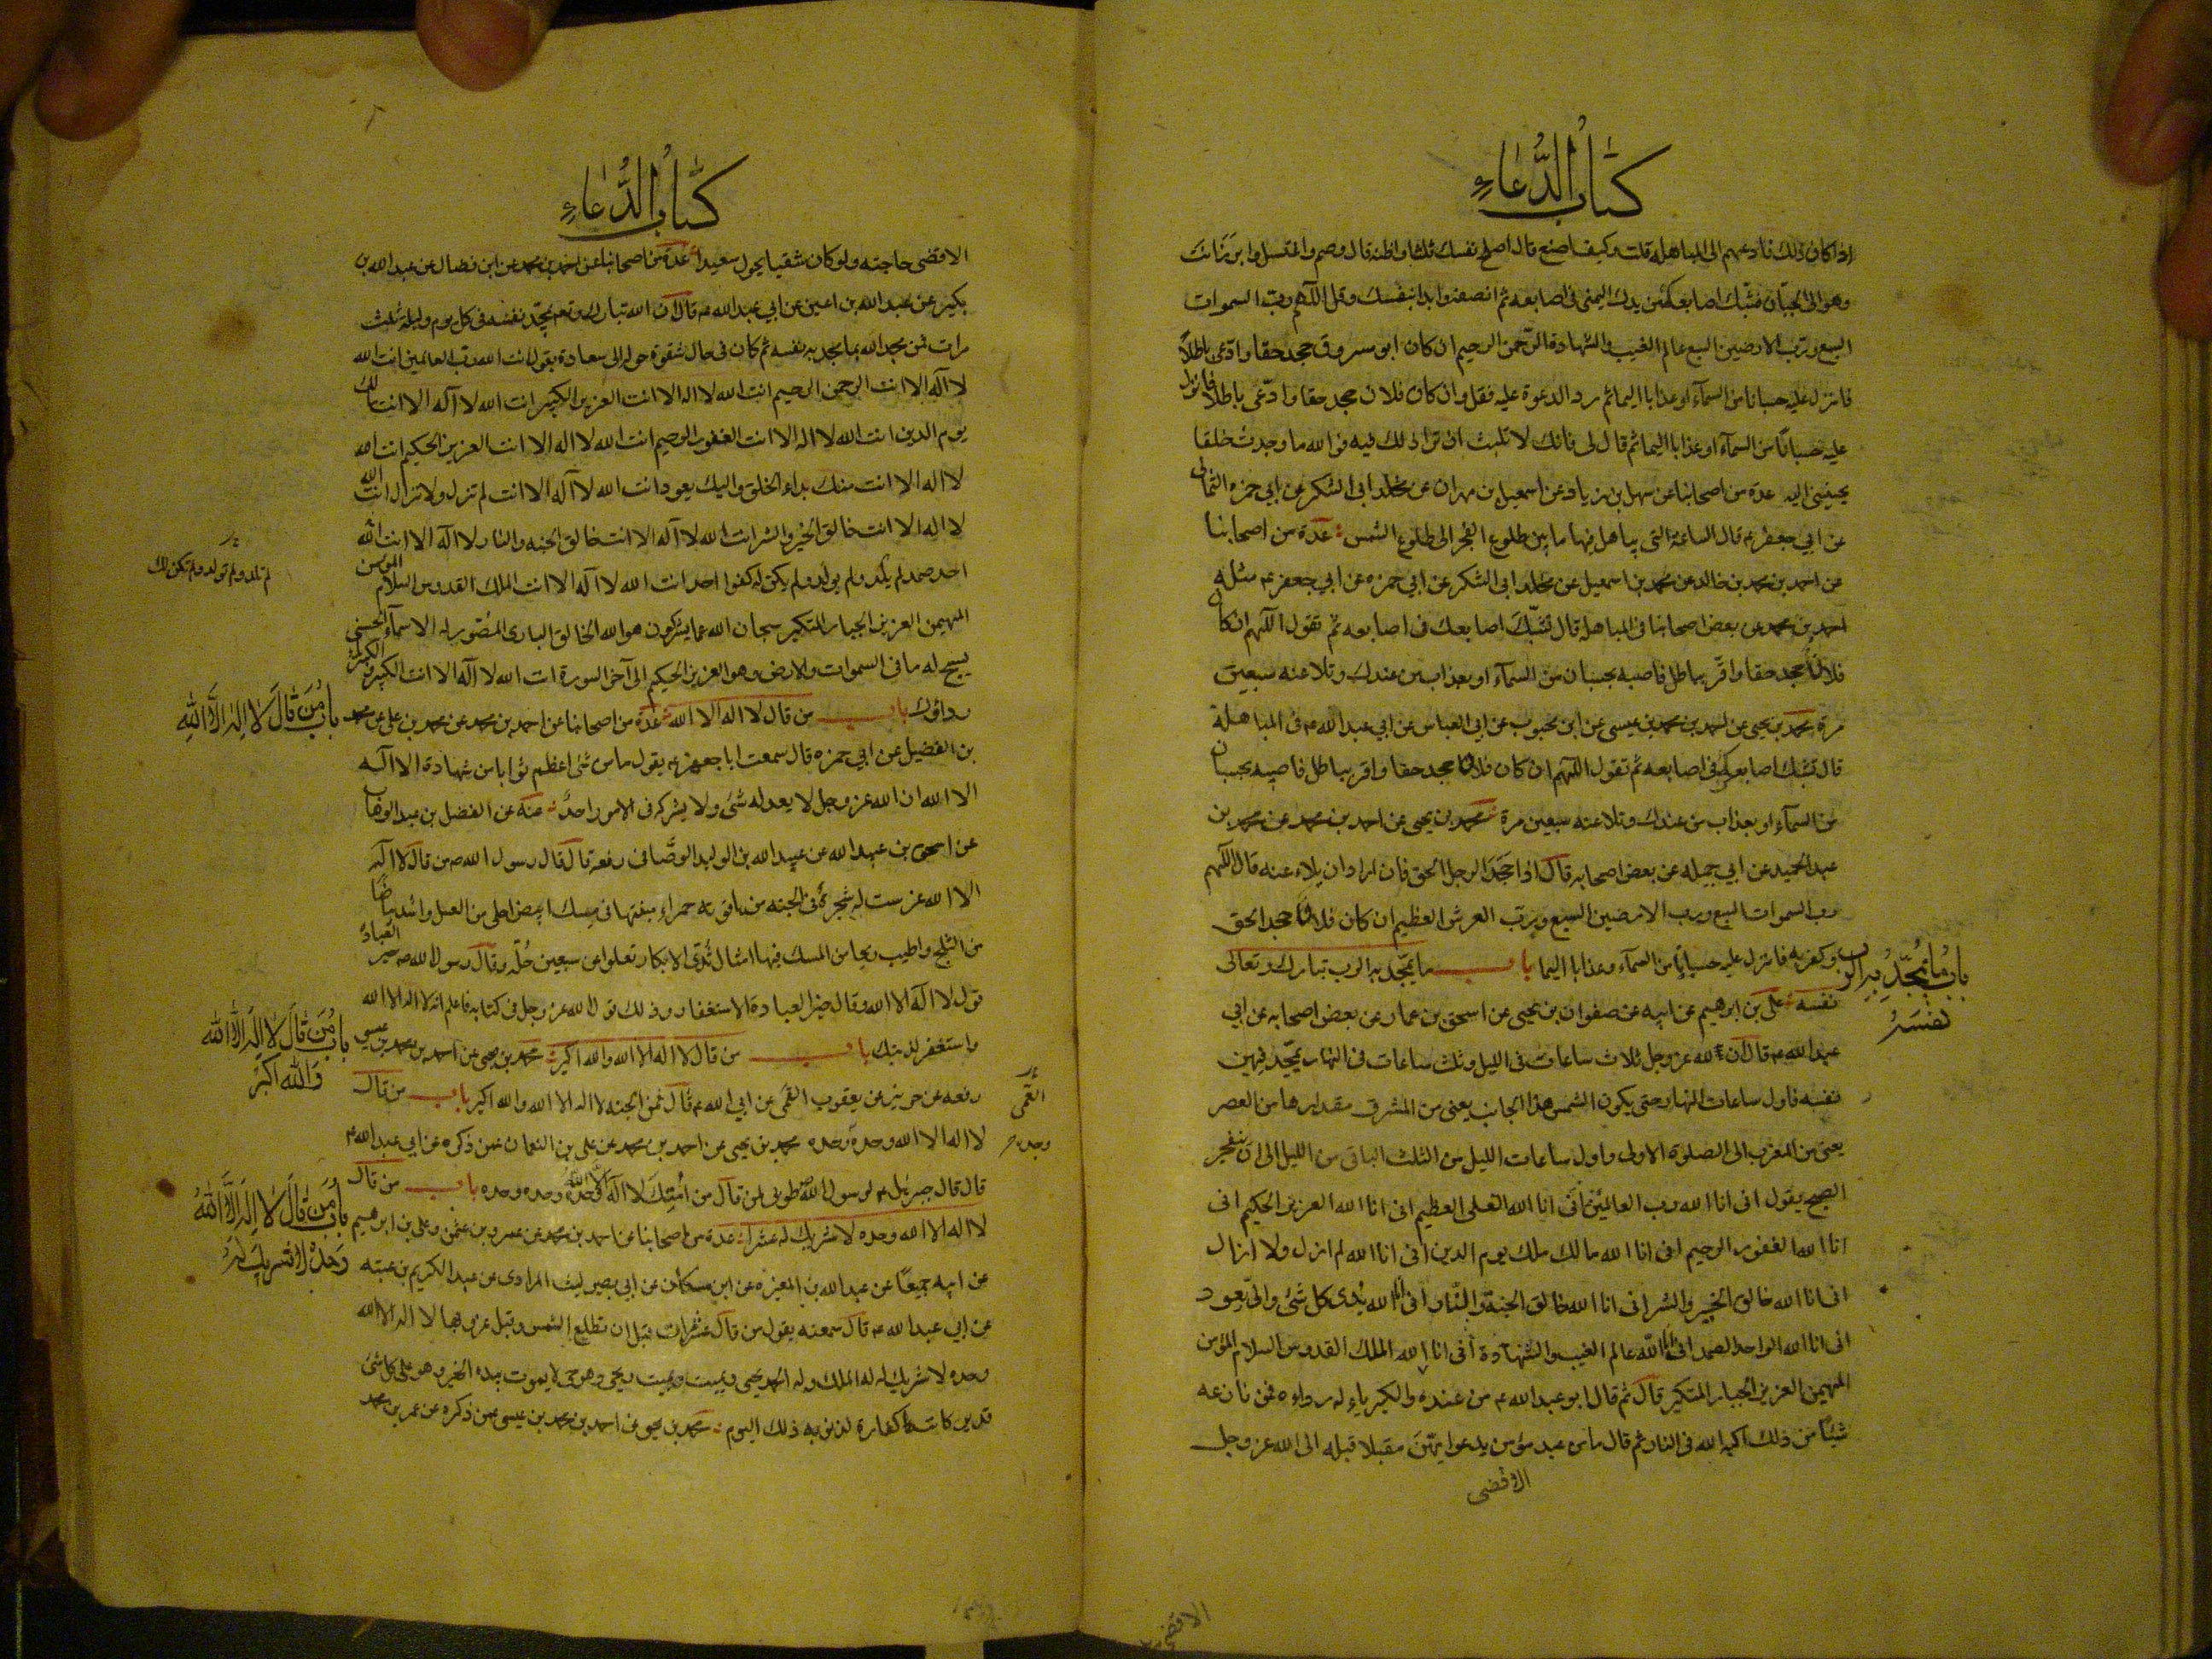 كتاب الدعاء
اذا كان ذلك فادعهم الى المباهلة قلت وكيف اصنع قال اصلح نفسك ثلثا واظنه قال وصم واغتسل وابرز انت
وهو الى الجبان فشبك اصابعك من يدك اليمنى فى اصابعه ثم انصفه وابدا بنفسك وقل اللهم رب السموات
السبع ورب الارضين السبع عالم الغيب والشهادة الرحمن الرحيم ان كان ابو مسروق جحد حقا وادعى باطلا
فانزل عليه حسبانا من السماء او عذابا اليما ثم رد الدعوة عليه فقل وان كان فلان جحد حقا وادعى باطلا فانزل
عليه حسبانا من السماء او عذابا اليما ثم قال لى فانك لا تلبث ان ترى ذلك فيه فو الله ما وجدت خلقا
يجيبنى اليه عدة من اصحابنا عن سهل بن زياد عن اسمعيل بن مهران عن مخلد ابى الشكر عن ابي حمزه الثمالى
عن ابي جعفر ع قال الساعة التى يباهل فيها ما بين طلوع الفجر الى طلوع الشمس عدة من اصحابنا
عن احمد بن محمد بن خالد عن محمد بن اسمعيل عن مخلد ابى الشكر عن ابي حمزه عن ابي جعفر ع مثله
احمد بن محمد عن بعض اصحابنا فى المباهله قال تشبك اصابعك فى اصابعه ثم تقول اللهم ان كان
فلانا جحد حقا واقر بباطل فاصبه بحسبان من السماء او بعذاب من عندك وتلاعنه سبعين
مرة محمد بن يحيى عن احمد بن محمد بن عيسى عن ابن محبوب عن ابي العباس عن ابي عبد الله ع فى المباهلة
قال تشبك اصابعك فى اصابعه ثم تقول اللهم ان كان فلان جحد حقا واقر بباطل فاصبه بحسبان
من السماء او بعذاب من عندك وتلاعنه سبعين مرة محمد بن يحيى عن احمد بن محمد عن محمد بن
عبد الحميد عن ابي جميله عن بعض اصحابه قال اذا جحد الرجل الحق فان اراد ان يلاعنه قال اللهم
رب السموات السبع ورب الارضين السبع ورب العرش العظيم ان كان فلانا جحد الحق
وكفر به فانزل عليه حسبانا من السماء وعذابا اليما باب ما يمجد به الرب تبارك وتعالى
باب ما يمجد به الرب
نفسه
نفسه على بن ابرهيم عن ابيه عن صفوان بن يحيى عن اسحق بن عمار عن بعض اصحابه عن ابي
عبد الله ع قال ان لله عز وجل ثلاث ساعات فى الليل وثلث ساعات فى النهار يمجد فيهن
نفسه فاول ساعات النهار حتى يكون الشمس هذا الجانب يعنى من المشرق مقدارها من العصر
يعنى من المغرب الى الصلوة الاولى واول ساعات الليل من الثلث الباقى من الليل الى ان ينفجر
الصبح يقول انى انا الله رب العالمين انى انا الله العلى العظيم انى انا الله العزيز الحكيم انى
انا الله الغفور الرحيم انى انا الله مالك ملك يوم الدين انى انا الله لم ازل ولا ازال
انى انا الله خالق الخير والشر انى انا الله خالق الجنة والنار انى انا الله بدى كل شئ والى يعود
انى انا الله الواحد الصمد انى انا الله عالم الغيب والشهادة انى انا الله الملك القدوس السلام المؤمن
المهيمن العزيز الجبار المتكبر قال ثم قال ابو عبد الله ع من عنده والكبرياء له رداءه فمن نازعه
شيئا من ذلك اكبه الله فى النار ثم قال ما من عبد مؤمن يدعوا بهن مقبلا قبله الى الله عز وجل
الا قضى
كتاب الدعاء
الا قضى حاجته ولو كان شقيا يحول سعيدا عدة من اصحابنا عن احمد بن محمد عن ابن فضال عن عبد الله بن
بكير عن عبد الله بن اعين عن ابي عبد الله ع قال ان الله تبارك وتع يمجد نفسه فى كل يوم وليله ثلث
مرات فمن مجد الله بما مجد به نفسه ثم كان فى حال شقوة حوله الى سعادة يقول انت الله رب العالمين انت الله
لا اله الا انت الرحمن الرحيم انت الله لا اله الا انت العزيز الكبير انت الله لا اله الا انت مالك
يوم الدين انت الله لا اله الا انت الغفور الرحيم انت الله لا اله الا انت العزيز الحكيم انت الله
لا اله الا انت منك بداء الخلق واليك يعود انت الله لا اله الا انت لم تزل ولا تزال انت الله
لا اله الا انت خالق الخير والشر انت الله لا اله الا انت خالق الجنه والنار لا اله الا انت الله
احد صمد لم يلد ولم يولد ولم يكن له كفوا احد انت الله لا اله الا انت الملك القدوس السلام المؤمن
لم تلد ولم تولد ولم تكن لك
المهيمن العزيز الجبار المتكبر سبحان الله عما يشركون هو الله الخالق البارى المصور له الاسماء الحسنى
يسبح له ما فى السموات والارض وهو العزيز الحكيم الى آخر السورة انت الله لا اله الا انت الكبير
رداؤك باب من قال لا اله الا الله عدة من اصحابنا عن احمد بن محمد عن محمد بن على عن محمد
باب من قال لا اله الا الله
بن الفضيل عن ابي حمزه قال سمعت ابا جعفر ع يقول ما من شئ اعظم ثوابا من شهادة الا اله
الا الله ان الله عز وجل لا يعدله شئ ولا يشركه فى الامور احد عنه عن الفضل بن عبد الوهاب
عن اسحق بن عبيد الله عن عبيد الله بن الوليد الوصافى رفعه قال قال رسول الله ص من قال لا اله
الا الله غرست له شجرة فى الجنه من ياقوته حمراء منبتها فى مسك ابيض احلى من العسل واشد بياضا
من الثلج واطيب ريحا من المسك فيها امثال ثدى الابكار تعلوا عن سبعين حلة وقال رسول الله ص خير العبادة
قول لا اله الا الله وقال خير العبادة الاستغفار وذلك قول الله عز وجل فى كتابه فاعلم انه لا اله الا الله
واستغفر لذنبك باب من قال لا اله الا الله والله اكبر محمد بن يحيى عن احمد بن محمد بن عيسى
باب من قال لا اله الا الله
والله اكبر
رفعه عن حريز عن يعقوب القمى عن ابي الله ع قال ثمن الجنه لا اله الا الله والله اكبر باب من قال
القمى
لا اله الا الله وحده وحده محمد بن يحيى عن احمد بن محمد عن على بن النعمان عمن ذكره عن ابي عبد الله ع
وحده
قال قال جبرئيل ع لرسول الله ص طوبى لمن قال من امتك لا اله الا الله وحده وحده وحده باب من قال
لا اله الا الله وحده لا شريك له عشرا عدة من اصحابنا عن احمد بن محمد عن عمرو بن عثمن وعلى بن ابرهيم
باب من قال لا اله الا الله
وحده لا شريك له
عن ابيه جميعا عن عبد الله بن المغيره عن ابن مسكان عن ابي بصير ليث المرادى عن عبد الكريم بن عتبه
عن ابي عبد الله ع قال سمعته يقول من قال عشر مرات قبل ان تطلع الشمس وقبل غروبها لا اله الا الله
وحده لا شريك له له الملك وله الحمد يحيى ويميت ويميت ويحيى وهو حى لا يموت بيده الخير وهو على كل شئ
قدير كانت كفارة لذنوبه ذلك اليوم محمد بن يحيى عن احمد بن محمد بن عيسى عمن ذكره عن عمر بن محمد
الا قضى